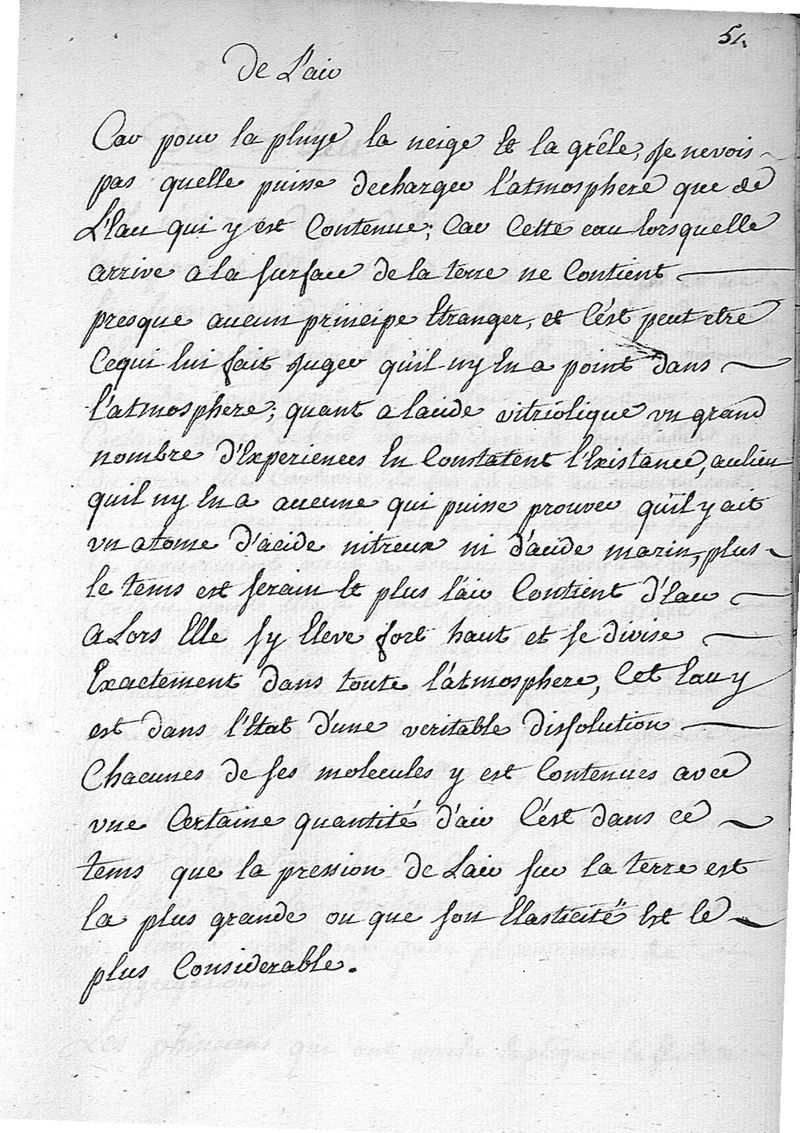 51.
De L'air
Car pour la pluye la neige et la grêle, Je ne vois
pas quelle puisse decharger l'atmosphere que de
L'Eau qui y est Contenue; Car Cette eau lorsquelle
arrive a la surface de la terre ne Contient
presque aucun principe Etranger, et C'est peut etre
Cequi lui fait Juger qu'il ny En a point dans
l'atmosphere; quant a lacide vitriolique vn grand
nombre d'Experiences En Constatent l'Existance, aulieu
quil ny En a aucune qui puisse prouver qu'il y ait
vn atome d'acide nitreux ni d'acide marin, plus
le tems est serain Et plus l'air Contient d'Eau
a Lors Elle sy Eleve fort haut et se divise
Exactement dans toute l'atmosphere, Cet Eau y
est dans l'Etat d'une veritable dissolution
Chacunes de ses molecules y est Contenues avec
vne Certaine quantité d'air C'est dans ce
tems que la pression de Lair sur la terre est
la plus grande ou que son Elasticité Est le
plus Considerable.